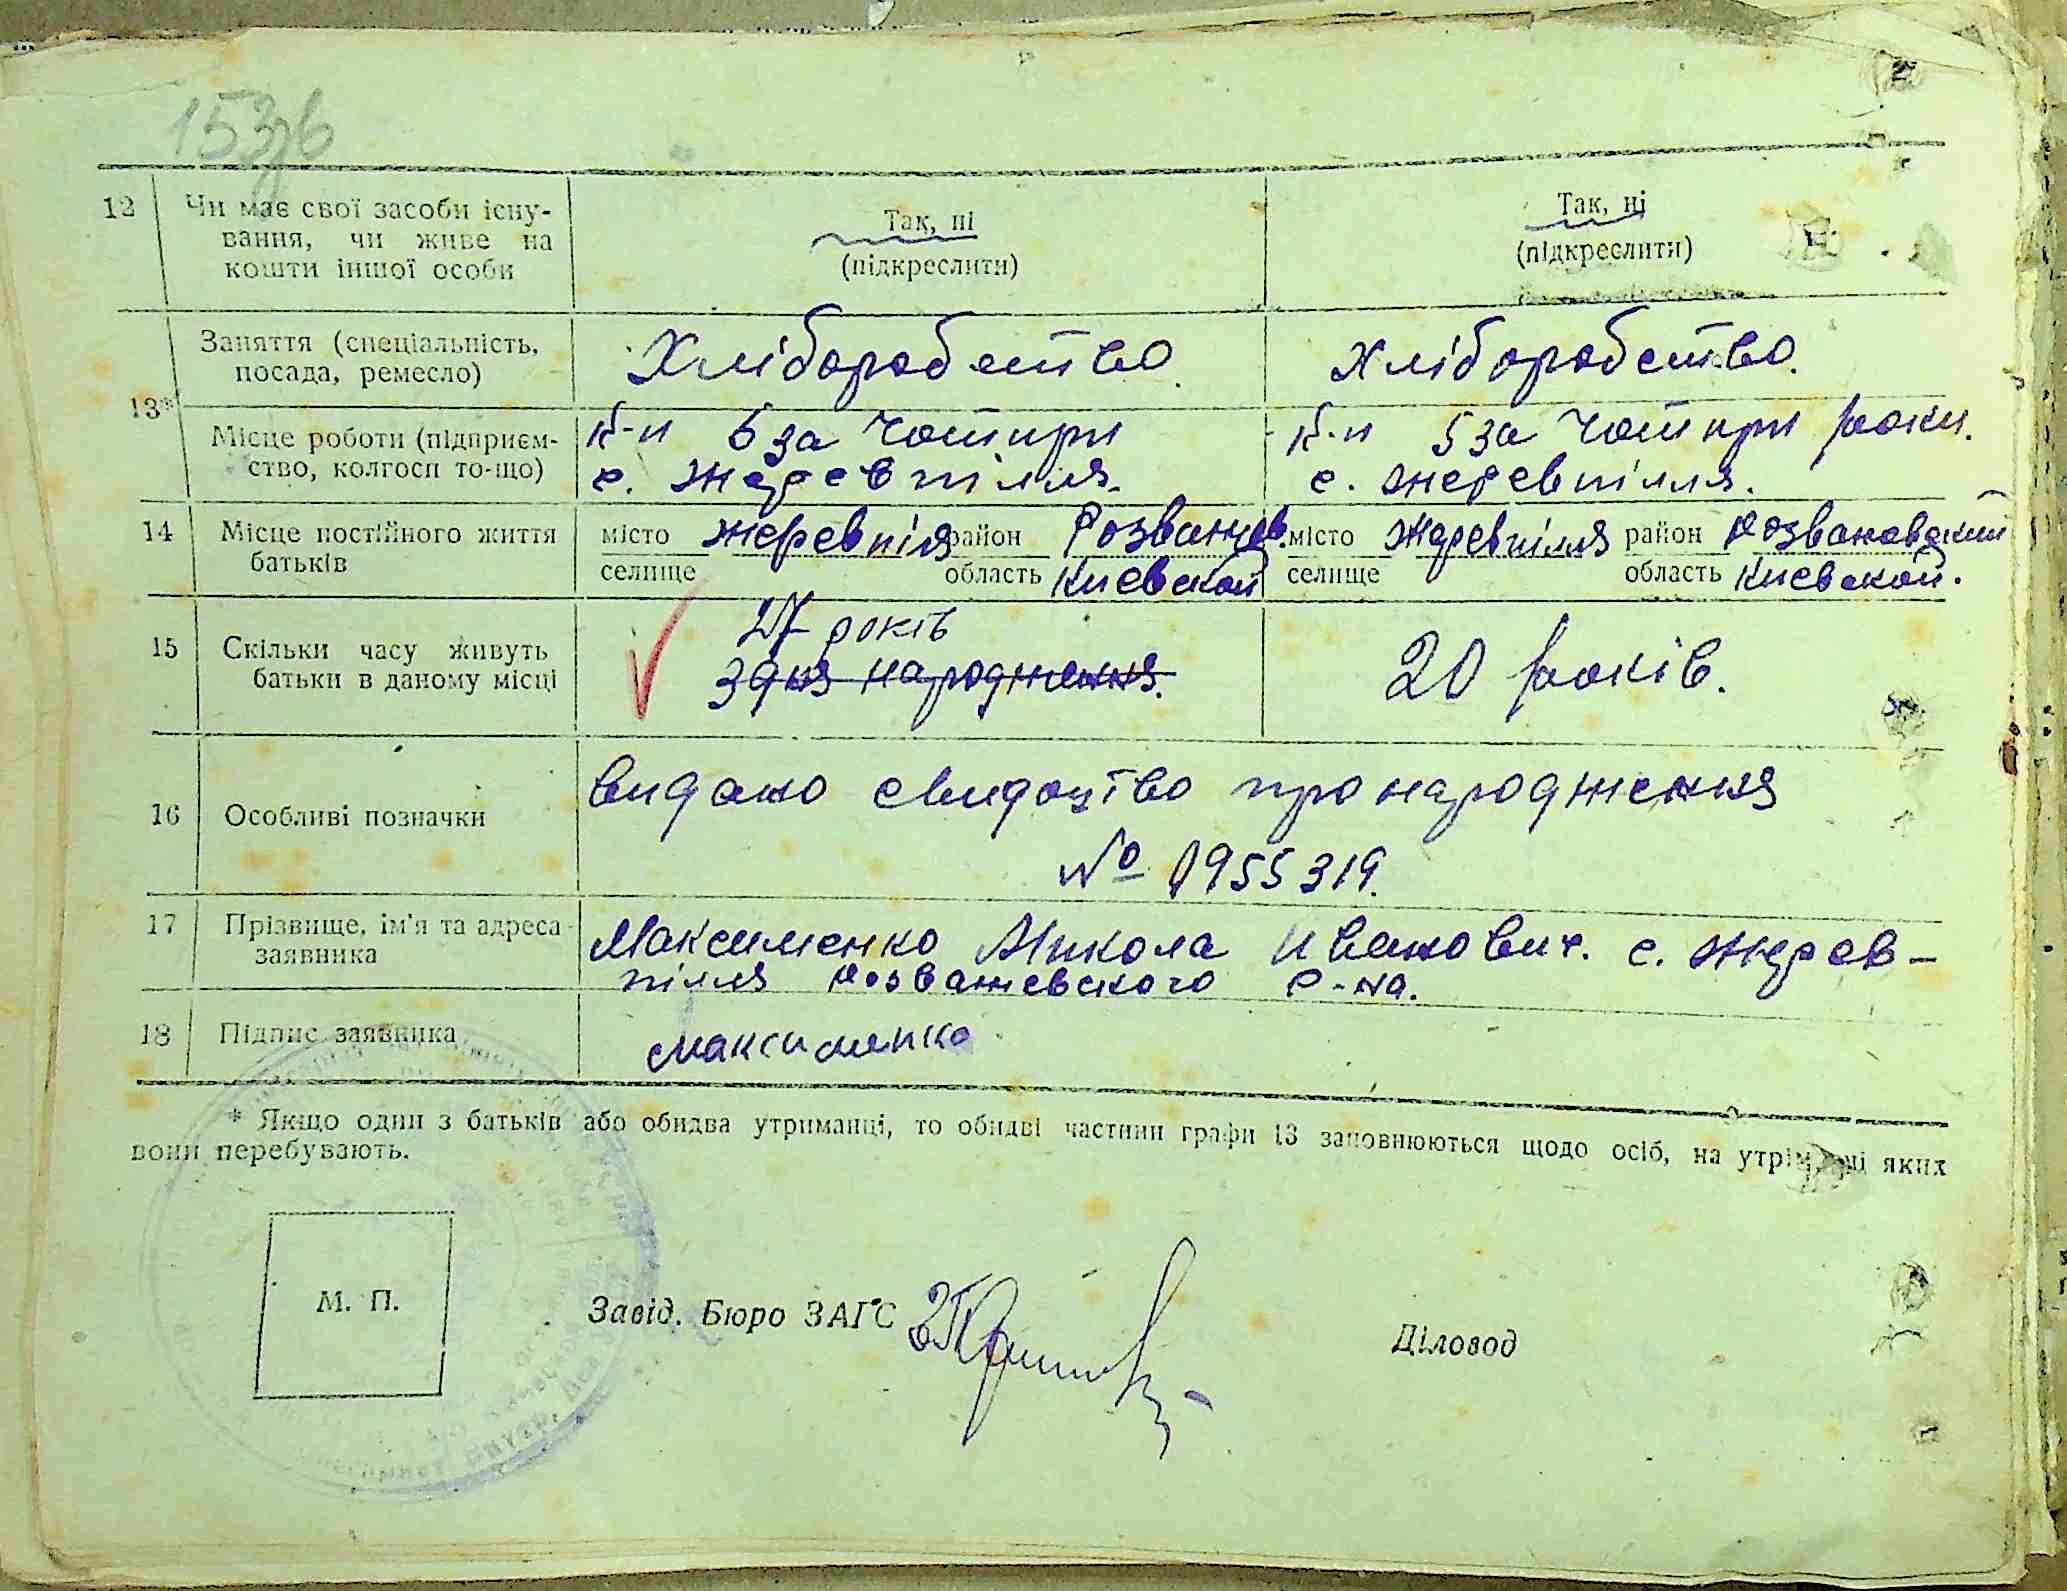 153зв
12 Чи має свої засоби існу-
вання, чи живе на
кошти іншої особи
Так, ні
(підкреслити)
Так, ні
(підкреслити)
13*
Заняття (спеціальність,
посада, ремесло)
Хліборобство
Хліборобство.
Місце роботи (підприєм-
ство, колгосп то-що)
к-п 5 за Чотири
с. Жеревпілля.
к-п 5 за Чотири роки.
с. Жеревпілля.
14 Місце постійного життя
батьків
місто Жеревпілля район Розважев.
селище область Киевской
місто Жеревпілля район Розважевский
селище область Киевской.
15 Скільки часу живуть
батьки в даному місці
27 років
З дня народження.
20 років.
16 Особливі позначки
Видано свидоцтво про народження
№ 1955319.
17 Прізвище, ім'я та адреса
заявника
Максименко Микола Иванович. с. Жерев-
пілля Розважевского р-на.
18 Підпис заявника
Максименко
* Якщо один з батьків або обидва утриманці, то обидві частини графи 13 заповнюються щодо осіб, на утриманні яких
вони перебувають.
М. П.
Завід. Бюро ЗАГС
Діловод